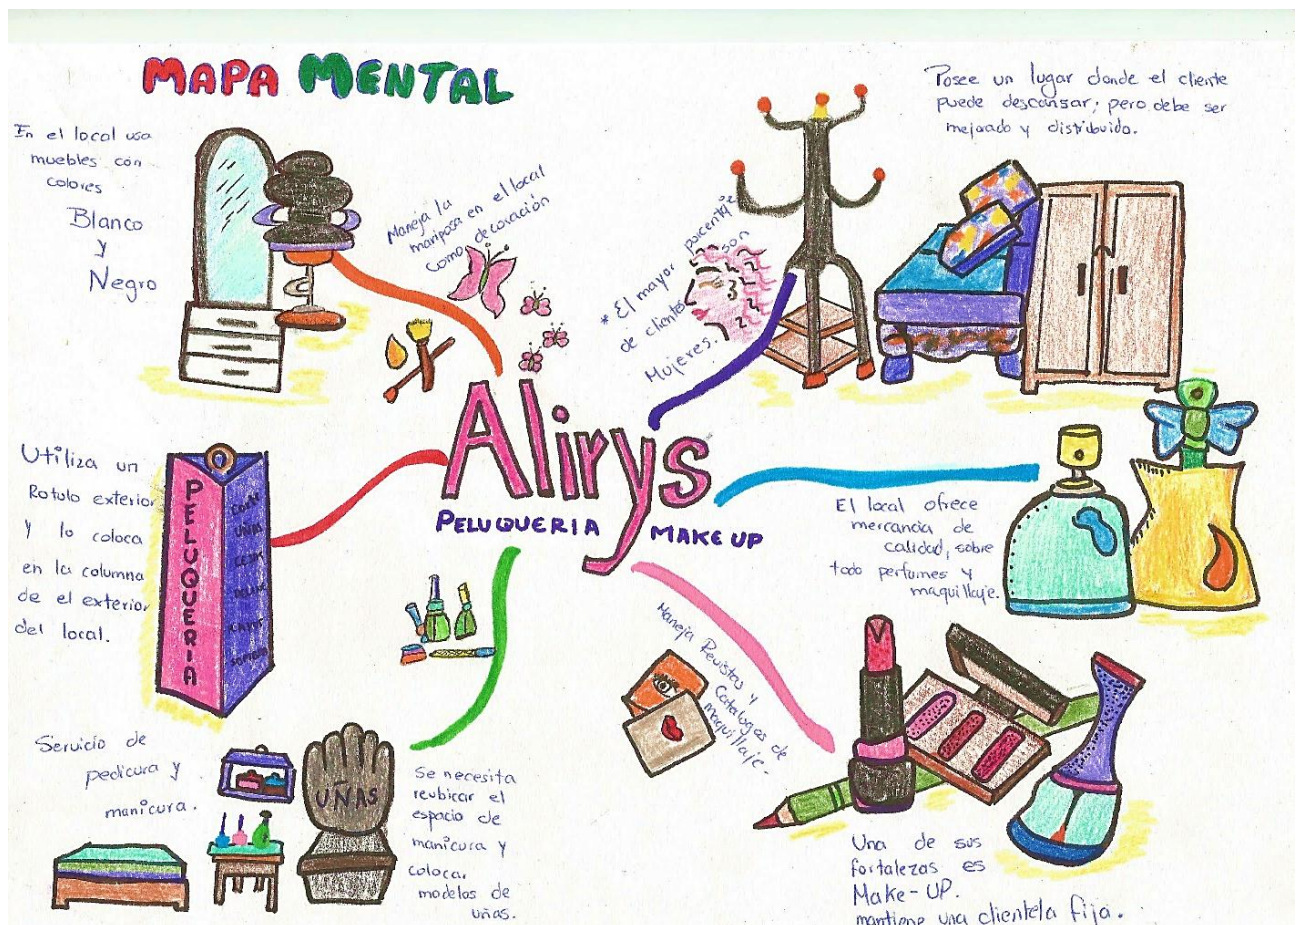 MAPA MENTAL
En el local usa
muebles con
colores
Blanco
y
Negro
Maneja la
mariposa en el local
como decoración
* El mayor porcentaje
de clientes son
Mujeres.
Posee un lugar donde el cliente
puede descansar; pero debe ser
mejorado y distribuido.
Utiliza un
Rotulo exterior
y lo coloca
en la columna
de el exterior
del local.
PELUQUERIA
UÑAS
Alirys
PELUQUERIA MAKE UP
El local ofrece
mercancia de
calidad, sobre
todo perfumes y
maquillaje.
Maneja Revistas y
Catalogos de
maquillaje.-
Servicio de
pedicura y
manicura.
UÑAS
Se necesita
reubicar el
espacio de
manicura y
colocar
modelos de
uñas.
Una de sus
fortalezas es
Make-UP.
mantiene una clientela fija.